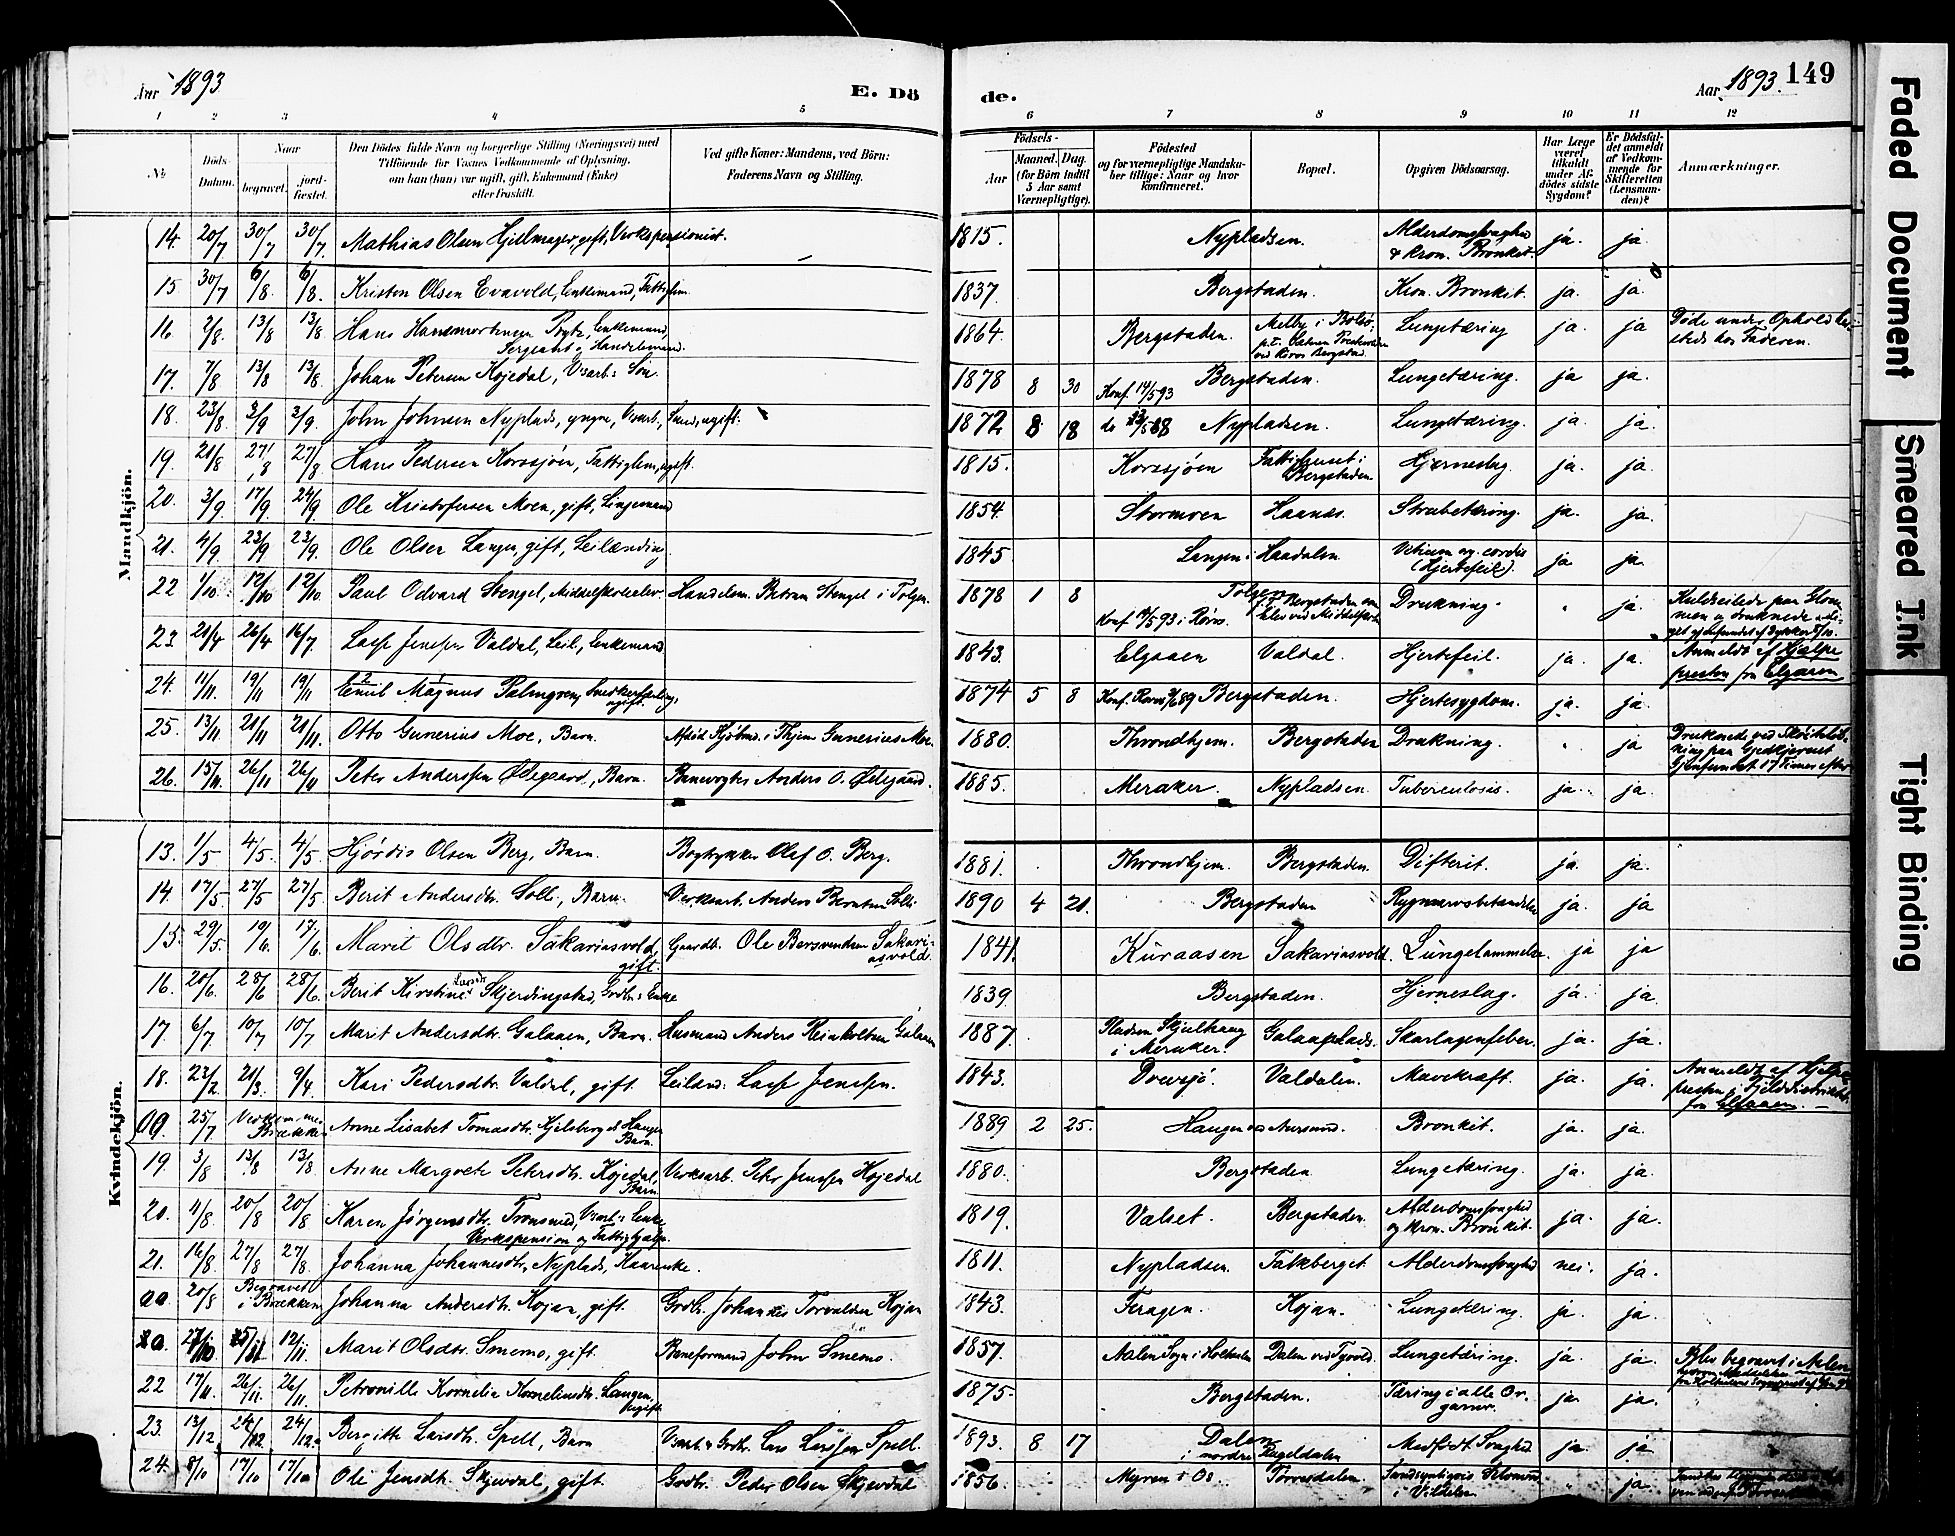 Aar 1893
E. Dö
de.
Aar 1893.
149
1 2 3 4 5 6 7 8 9 10 11 12
№
Döds-Datum.
Naar
begravet.
jordfæstet.
Den Dödes fulde Navn og borgerlige Stilling (Næringsvei) med
Tilföiende for Voxnes Vedkommende af Oplysning,
om han (hun) var ugift, gift, Enkemand (Enke)
eller fraskilt.
Ved gifte Koner: Mandens, ved Börn:
Faderens Navn og Stilling.
Födsels-
Aar
Maaned. Dag.
(for Börn indtil
5 Aar samt
Værnepligtige).
Födested
og for værnepligtige Mandska-
ber tillige: Naar og hvor
konfirmeret.
Bopæl.
Opgiven Dödsaarsag.
Har Læge
været
tilkaldt
under Af-
dödes sidste
Sygdom?
Er Dödsfal-
det anmeldt
af Vedkom-
mende for
Skifteretten
(Lensman-
den)?
Anmærkninger.
Mandkjön.
14. 20/7 30/7 30/7 Mathias Olsen Hjillmager, gift, Verkspensionist. 1815. Nypladsen. Alderdomssvaghed & kron. Bronkit. ja. ja
15. 30/7 6/8 6/8. Kristen Olsen Evavold, Enkemand, Fattiglem. 1837. Bergstaden. Kron. Bronkit. ja. ja.
16 2/8. 13/8 13/8 Enkemand, Sergeant og Handelsmand. 1864. Bergstaden. Lungetæring ja. ja Døde under Ophold
hos Faderen.
17. 7/8 13/8 13/8. Johan Petersen Kojedal, Varb.s Søn. 1878 8 30 Konf. 14/5 93 Bergstaden. Lungetæring. ja ja.
18. 23/8 3/9 3/9. John Johnsen Nyplads, yngre, Varb., ugift. 1872 8 18 Nypladsen. Lungetæring. ja. ja.
19. 21/8 27/8 27/8 Hans Pedersen Korssjøen, Fattiglem, ugift. 1815. Korssjøen Fattighuset i Bergstaden. Hjerneslag. ja. ja.
20. 3/9 17/9 24/9 Ole Kristofersen Moen, gift, Linjemand 1854. Stormoen Haanes. Strubetæring. ja. ja.
21. 4/9 23/9 23/9. Ole Olsen Langen, gift, Leilænding. 1845. Langen i Haadalen. Vitium cordis (Hjertefeil). ja ja.
22 1/10. 12/10 12/10. Paul Odvard Stengel, Middelskoleelev. Handelsm. Petran Stengel i Tolgen. 1878 1 8 Tolgen Konf. 14/5 93 i Røros. Drukning. " ja. Kuldseilede paa Glommen og druknede
23 21/4 26/4 16/7. Lasse Jensen Valdal, Leil., Enkemand 1843. Elgaaen Valdal. Hjertefeil. ja. ja. Anmeldt af Hjælpe
presten fra Elgaaen
24. 11/11. 19/11 19/11 Emil Magnus Palmgren, Snedkerlærling, ugift. 1874 5 8 Konf. Røros 89 Bergstaden. Hjertesygdom. ja. ja
25. 13/11 21/11 21/11. Otto Gunerius Moe, Barn. Afdød Kjøbmd. i Thjem Gunerius Moe. 1880. Throndhjem. Bergstaden Drukning. " ja Druknede ved Skøiteløb-
ning paa Gjedkjernet
Gjenfundet 17 Timer efter
26. 15/11. 26/11 26/11 Peter Anderssen Ødegaard, Barn. Banevogter Anders O. Ødegaard. 1885. Meraker. Nypladsen. Tuberculosis. ja. ja.
Kvindekjön.
13. 1/5 4/5. 4/5 Hjørdis Olsen Berg, Barn. Bogtrykker Olaf O. Berg. 1881. Throndhjem. Bergstaden. Difterit. ja. ja.
14. 17/5 27/5 27/5 Berit Andersdtr. Solli, Barn. Verksarb. Anders Berntsen Solli. 1890 4 21. Bergstaden ja. ja
15. 29/5. 19/6. 17/6 Marit Olsdtr. Sakariasvold gift. Gaardb. Ole Bersvendsen Sakariasvold. 1841. Kuraasen Sakariasvold. Lungelammelse. ja ja
16. 20/6. 28/6 28/6. Berit Kirstine Larsdtr Skjerdingstad, Grdbs Enke 1839. Bergstaden. Hjerneslag. ja. ja.
17. 6/7 10/7 10/7 Marit Andersdtr. Galaaen, Barn. Husmand Anders Reinholtsen Galaaen 1887. Pladsen Skjelhaug i Meraker. Galaaplads. Skarlagensfeber. ja. ja.
18. 23/2 21/3. 9/4 Kari Pedersdtr. Valdal, gift. Leilænd. Lasse Jenssen. 1843. Drevsjø. Valdalen. Mavekræft. ja. ja. Anmeldt af Hjelpe
presten i Fjelddistriktet
fra Elgaaen.
00 25/7 Brækken Anne Lisabet Tomasdtr. Kjelsberg Haugen Barn. 1889 2 25. Haugen Aursund. Bronkit. ja. ja.
19. 3/8 13/8 13/8 Anne Margrete Petersdtr. Kojedal, Barn Verksarb. Peter Jensen Kojedal 1880. Bergstaden Lungetæring. ja. ja.
20. 11/8 20/8 20/8 Karen Jørgensdtr. Tronsmed, Varb.s Enke Verkspension og Fattighjælp. 1819. Valset. Bergstaden. Alderdomssvaghed og kron. Bronkit. ja. ja.
21. 16/8. 27/8 27/8. Johanna Johannesdtr. Nyplads, Kaarenke. 1811. Nypladsen. Falkberget. Alderdomssvaghed nei. ja.
20/8 Begravet i Brækken Johanna Andersdtr. Kojan, gift. Grdbr. Johannes Torvaldsen Kojan 1843. Feragen. Kojan. Lungetæring. ja. ja.
12/11. Marit Olsdtr. Smemo, gift. Baneformand John Smemo. 1857. Aalen Sogn i Holtaalen Dalen ved Tyvold. Lungetæring. ja. ja. Blev begravet i Aalen
22 17/11. 26/11. 26/11. Petronille Kornelia Kornelinsdtr. Langen, ugift. 1875. Bergstaden. Tæring i alle Organer. ja. ja.
23. 13/12. 24/12 24/12. Bergitte Larsdtr. Spell, Barn Varb. & Grdbr. Lars Larssen Spell. 1893. 8 17 Dalen i nordre Rugeldalen Medfødt Svaghed ja. ja
24. 8/10 17/10 17/10 Oli Jensdtr. Skjevdal, gift. Grdbr. Peder Olsen Skjevdal 1856. Myren i Os. Torresdalen. i Vildelse. " ja.
Faded Document
Smeared Ink
Tight Binding